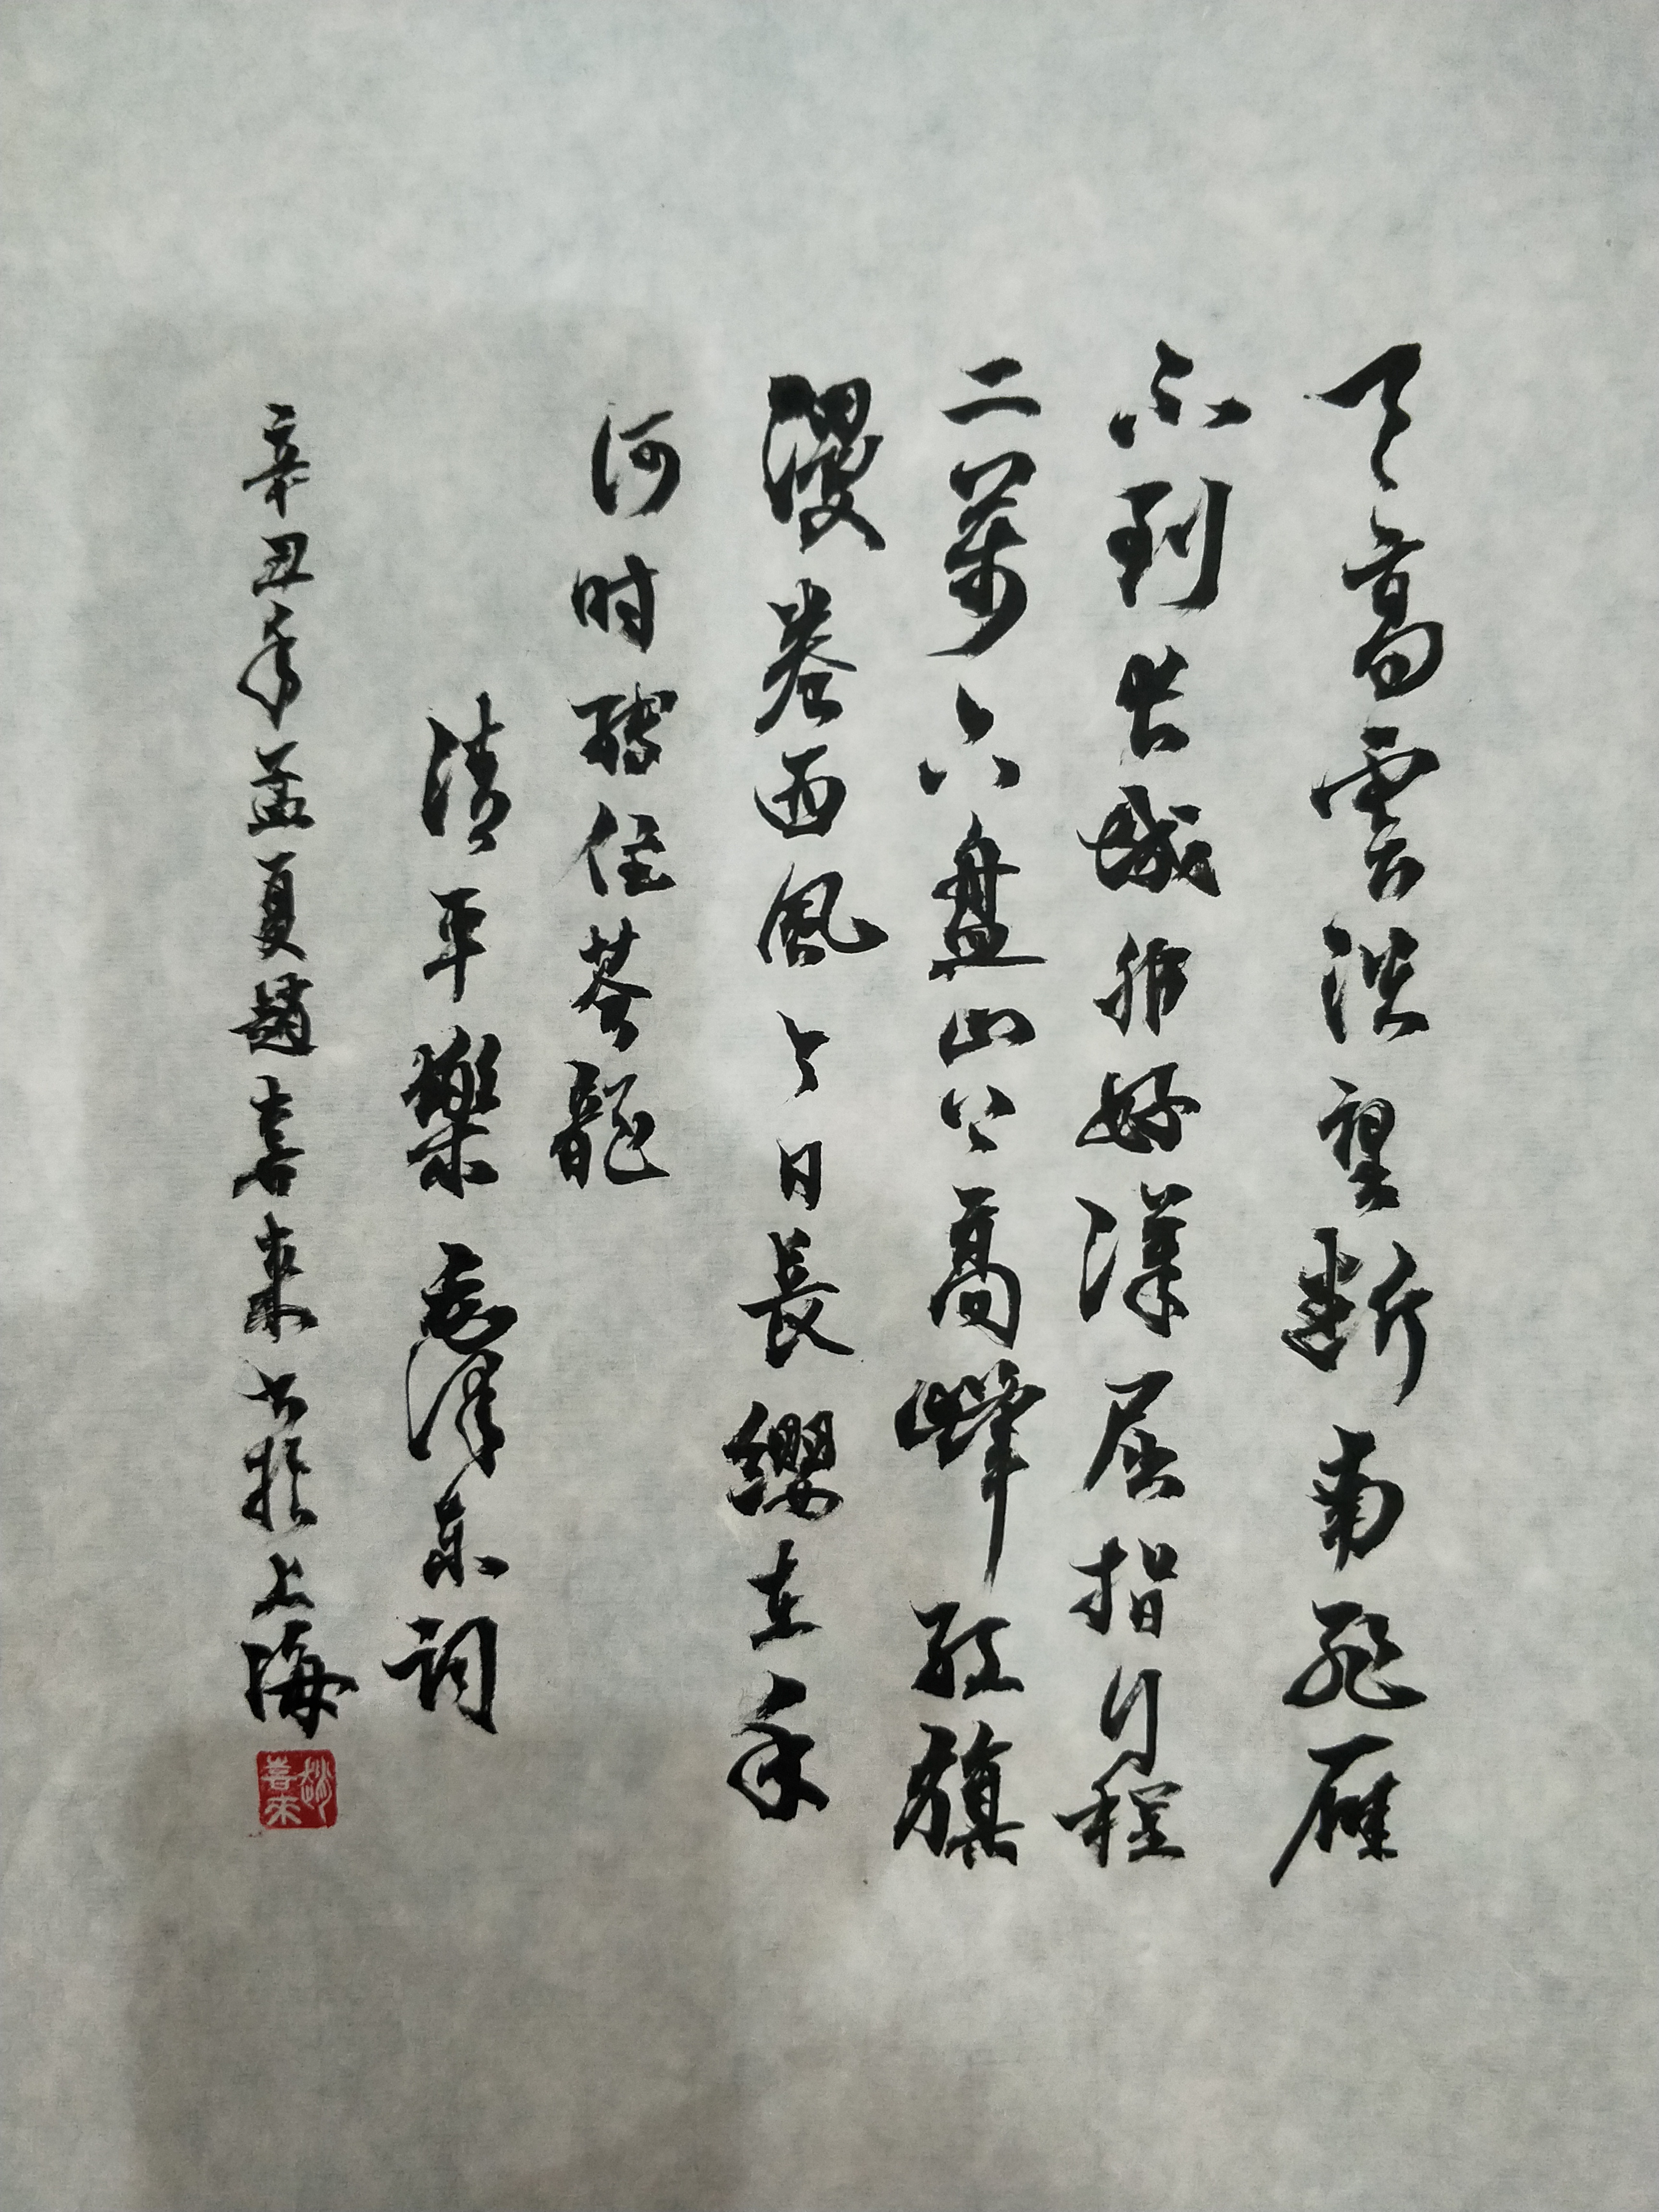 天高雲淡望斷南飛雁
不到长城非好漢屈指行程
二萬六盤山上高峰紅旗
漫卷西風今日長纓在手
何时縛住苍龍
清平樂毛澤东詞
辛丑年孟夏趙喜來书於上海
趙喜來